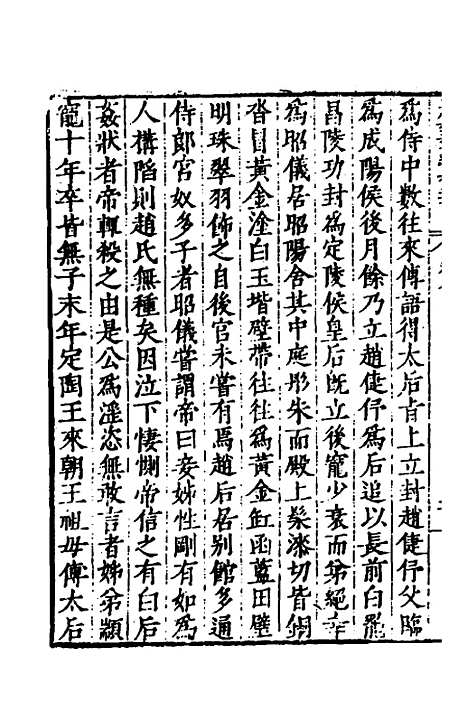 爲侍中數往來傳語得太后旨上立封趙倢伃父臨
爲成陽侯後月餘乃立趙倢伃爲后追以長前白罷
昌陵功封爲定陵侯皇后旣立後寵少衰而弟絕幸
爲昭儀居昭陽舍其中庭彤朱而殿上髹漆切皆銅
沓冒黃金塗白玉堦壁帶往往爲黃金釭函藍田璧
明珠翠羽飾之自後宮未嘗有焉趙后居別館多通
侍郎宮奴多子者昭儀嘗謂帝曰妾姊性剛有如爲
人構陷則趙氏無種矣因泣下悽惻帝信之有白后
姦狀者帝輒殺之由是公爲淫恣無敢言者姊弟顓
寵十年卒皆無子末年定陶王來朝王祖母傅太后